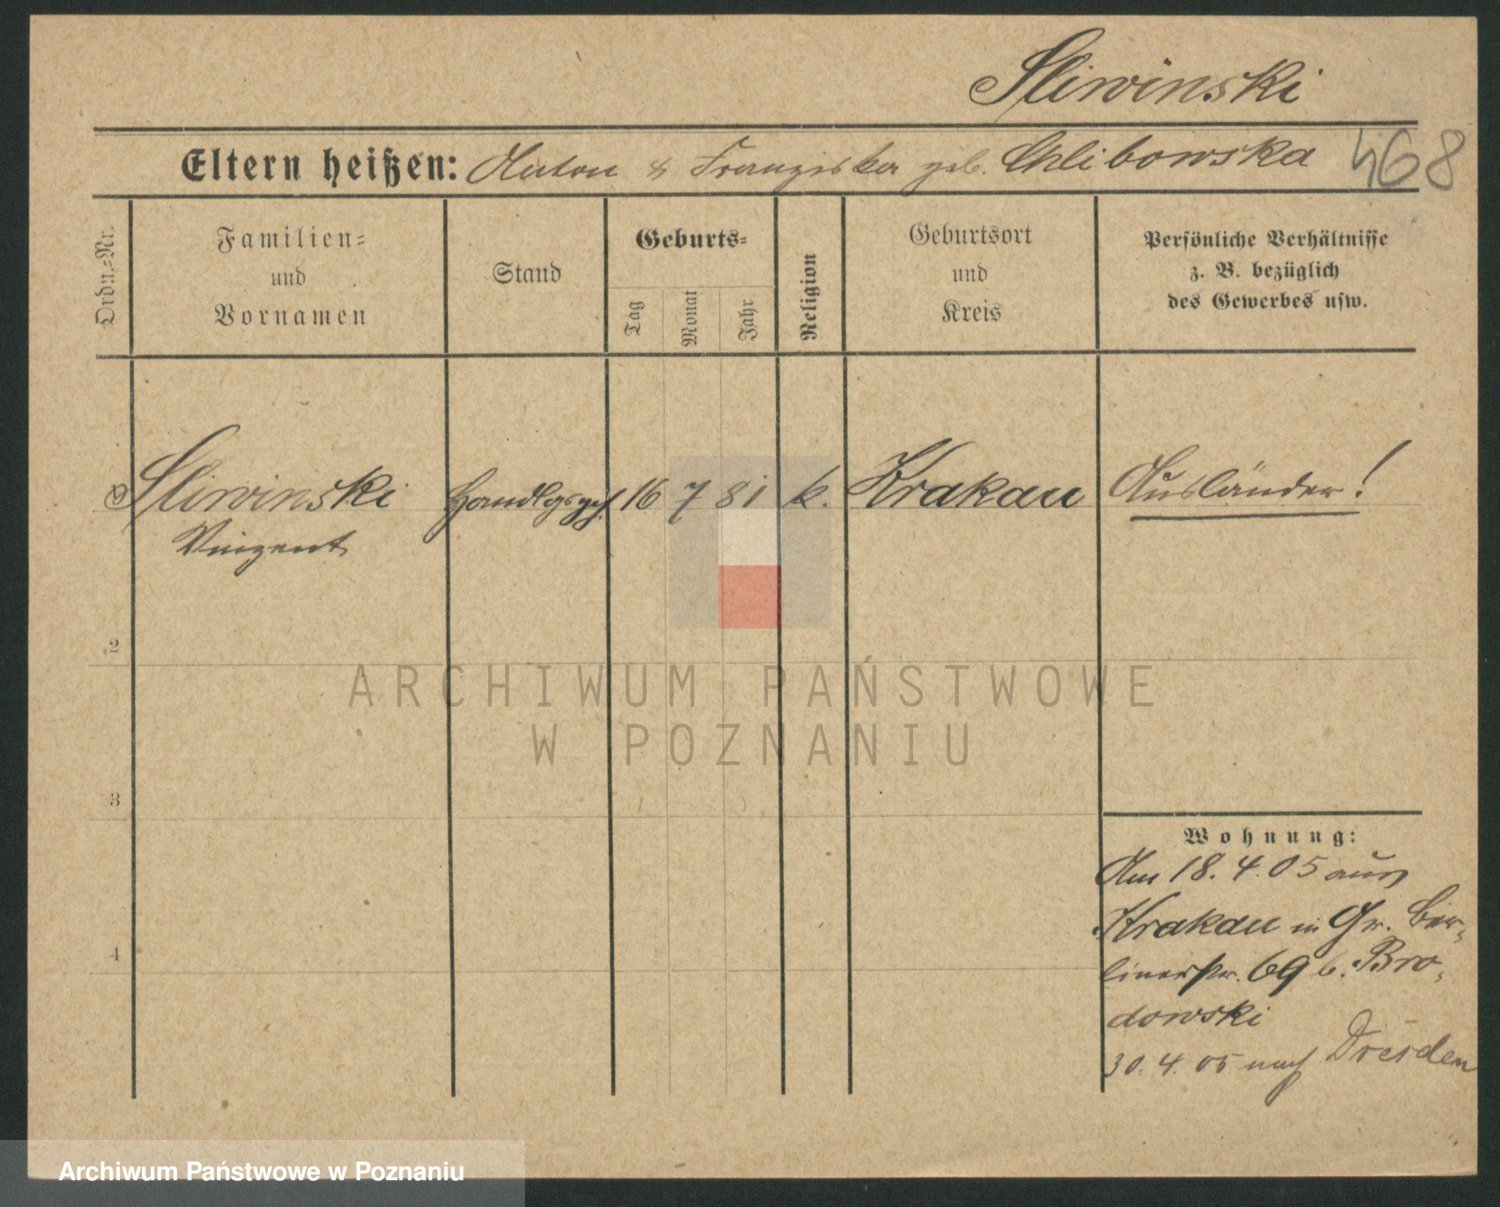 Sliwinski
Eltern heißen: Anton & Franziska geb. Chlibowska 468
Ordn.=Nr.
Familien=
und
Vornamen
Stand
Geburts=
Tag
Monat
Jahr
Religion
Geburtsort
und
Kreis
Persönliche Verhältnisse
z. B. bezüglich
des Gewerbes usw.
Sliwinski Handlgsgeh. 16 7 81 k. Krakau Ausländer!
Vinzent
2
ARCHIWUM PAŃSTWOWE
W POZNANIU
3
Wohnung:
Am 18. 4. 05 aus
Krakau in Gr. Ber-
linerstr. 69 b. Bro-
dowski
4
30. 4. 05 nach Dresden
Archiwum Państwowe w Poznaniu